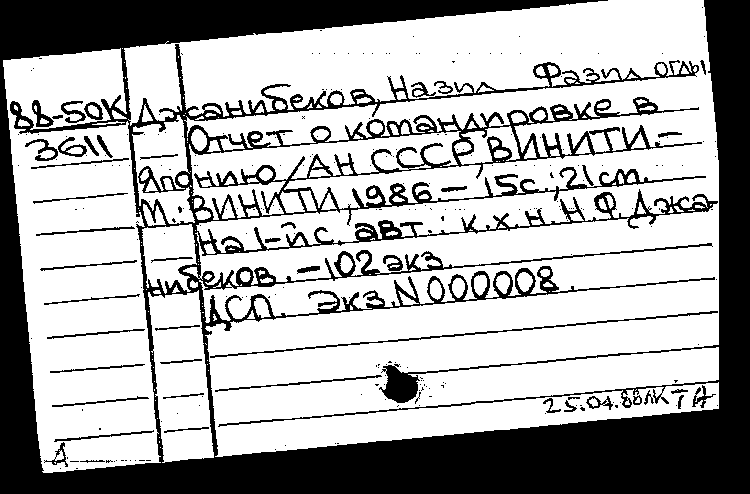 88-50К Джанибеков, Назил Фазил оглы
3611 Отчет о командировке в
Японию/АН СССР, ВИНИТИ.-
М.: ВИНИТИ, 1986.- 15с.; 21см.
На 1-й с. авт.: к.х.н. Н.Ф. Джа-
нибеков.-102 экз.
ДСП. Экз. N 000008.
25.04.88 ЛК ТА
Д